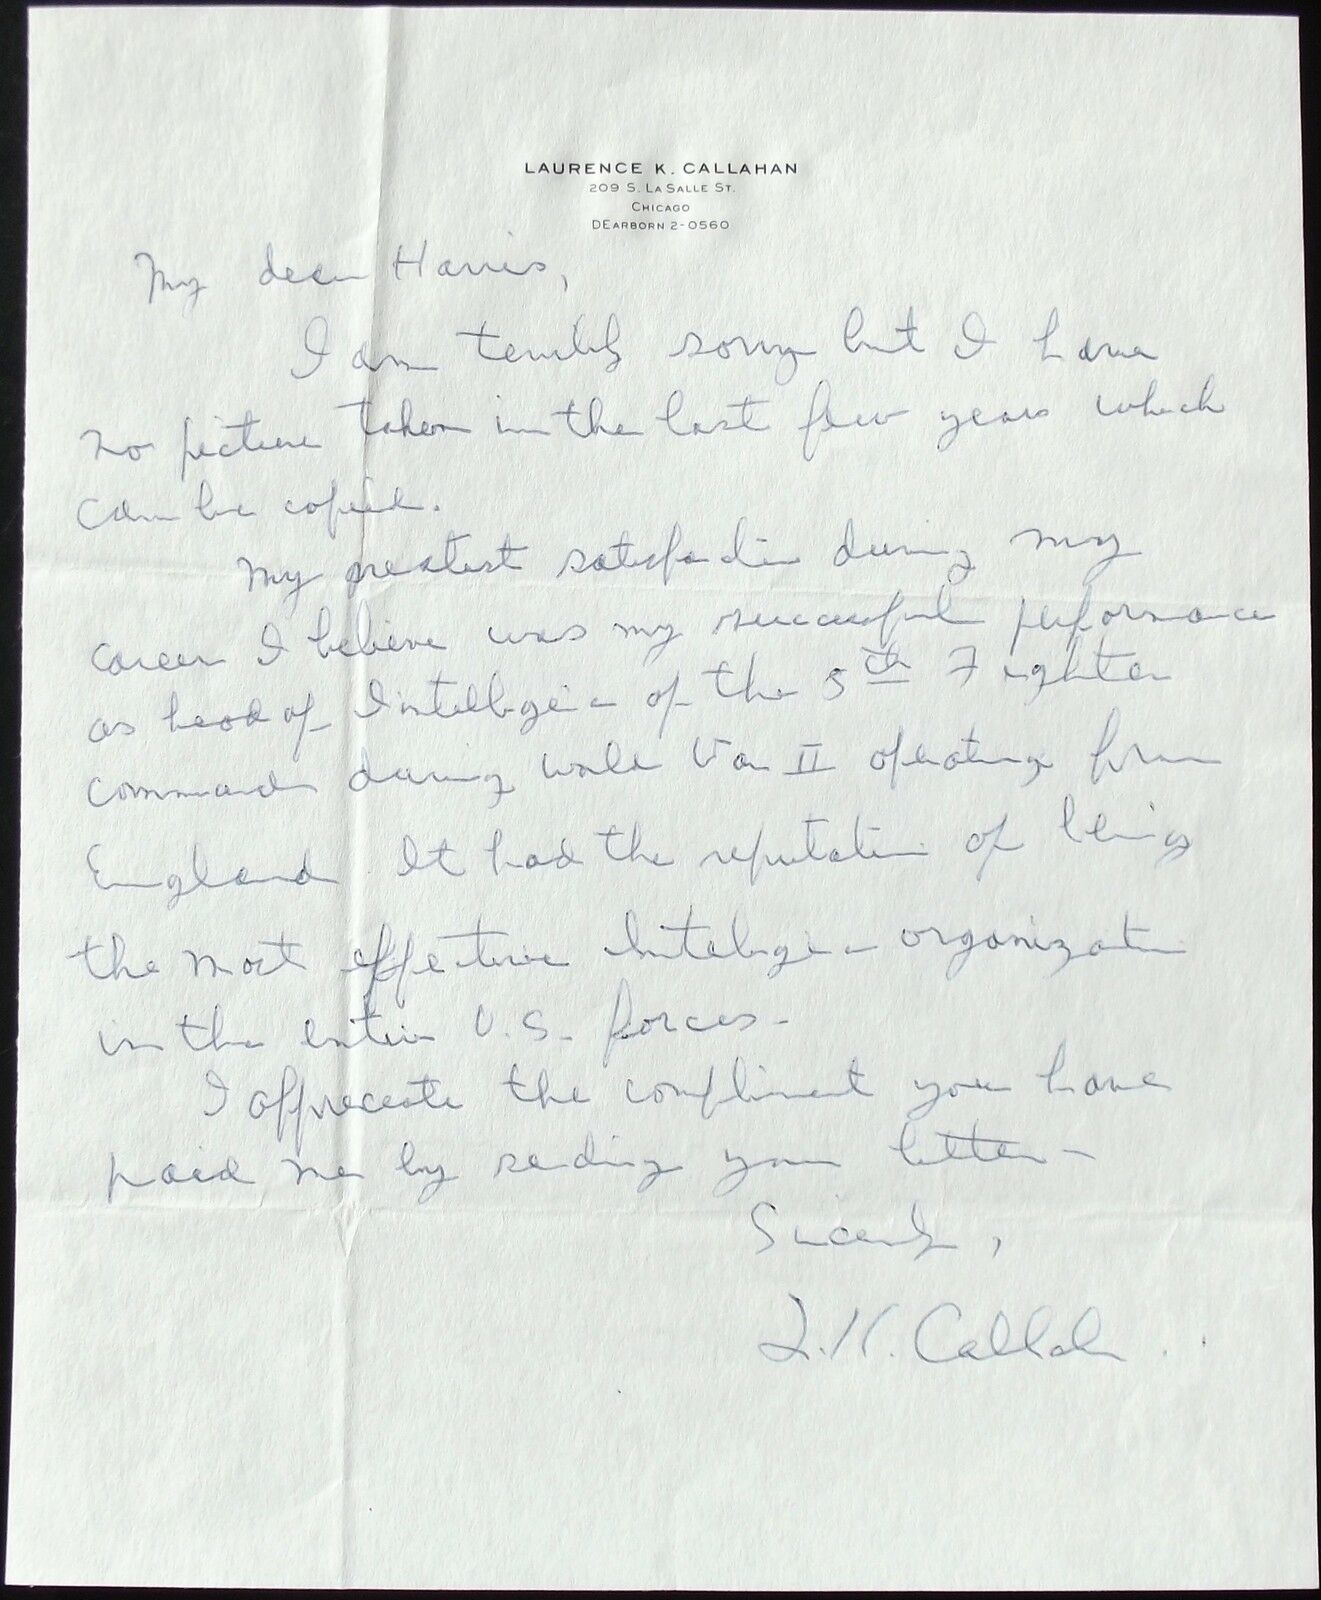 LAURENCE K. CALLAHAN
209 S. LA SALLE ST.
CHICAGO
DEARBORN 2-0560
My dear Harris,
I am terribly sorry but I have
no picture taken in the last few years which
can be copied.
My greatest satisfaction during my
career I believe was my successful performance
as head of Intelligence of the 8th Fighter
command during World War II operating from
England. It had the reputation of being
the most effective Intelligence organization
in the entire U.S. forces-
I appreciate the compliment you have
paid me by sending your letter-
Sincerely,
L.K. Callahan